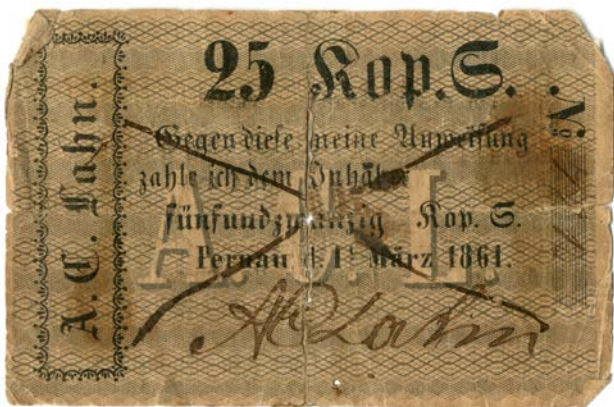 25 Kop. S.
A. C. Lahn.
No
Gegen diese meine Anweisung
zahle ich dem Inhaber
fünfundzwanzig Kop. S.
Pernau d. 1t März 1861.
A. C. L.
AC Lahn